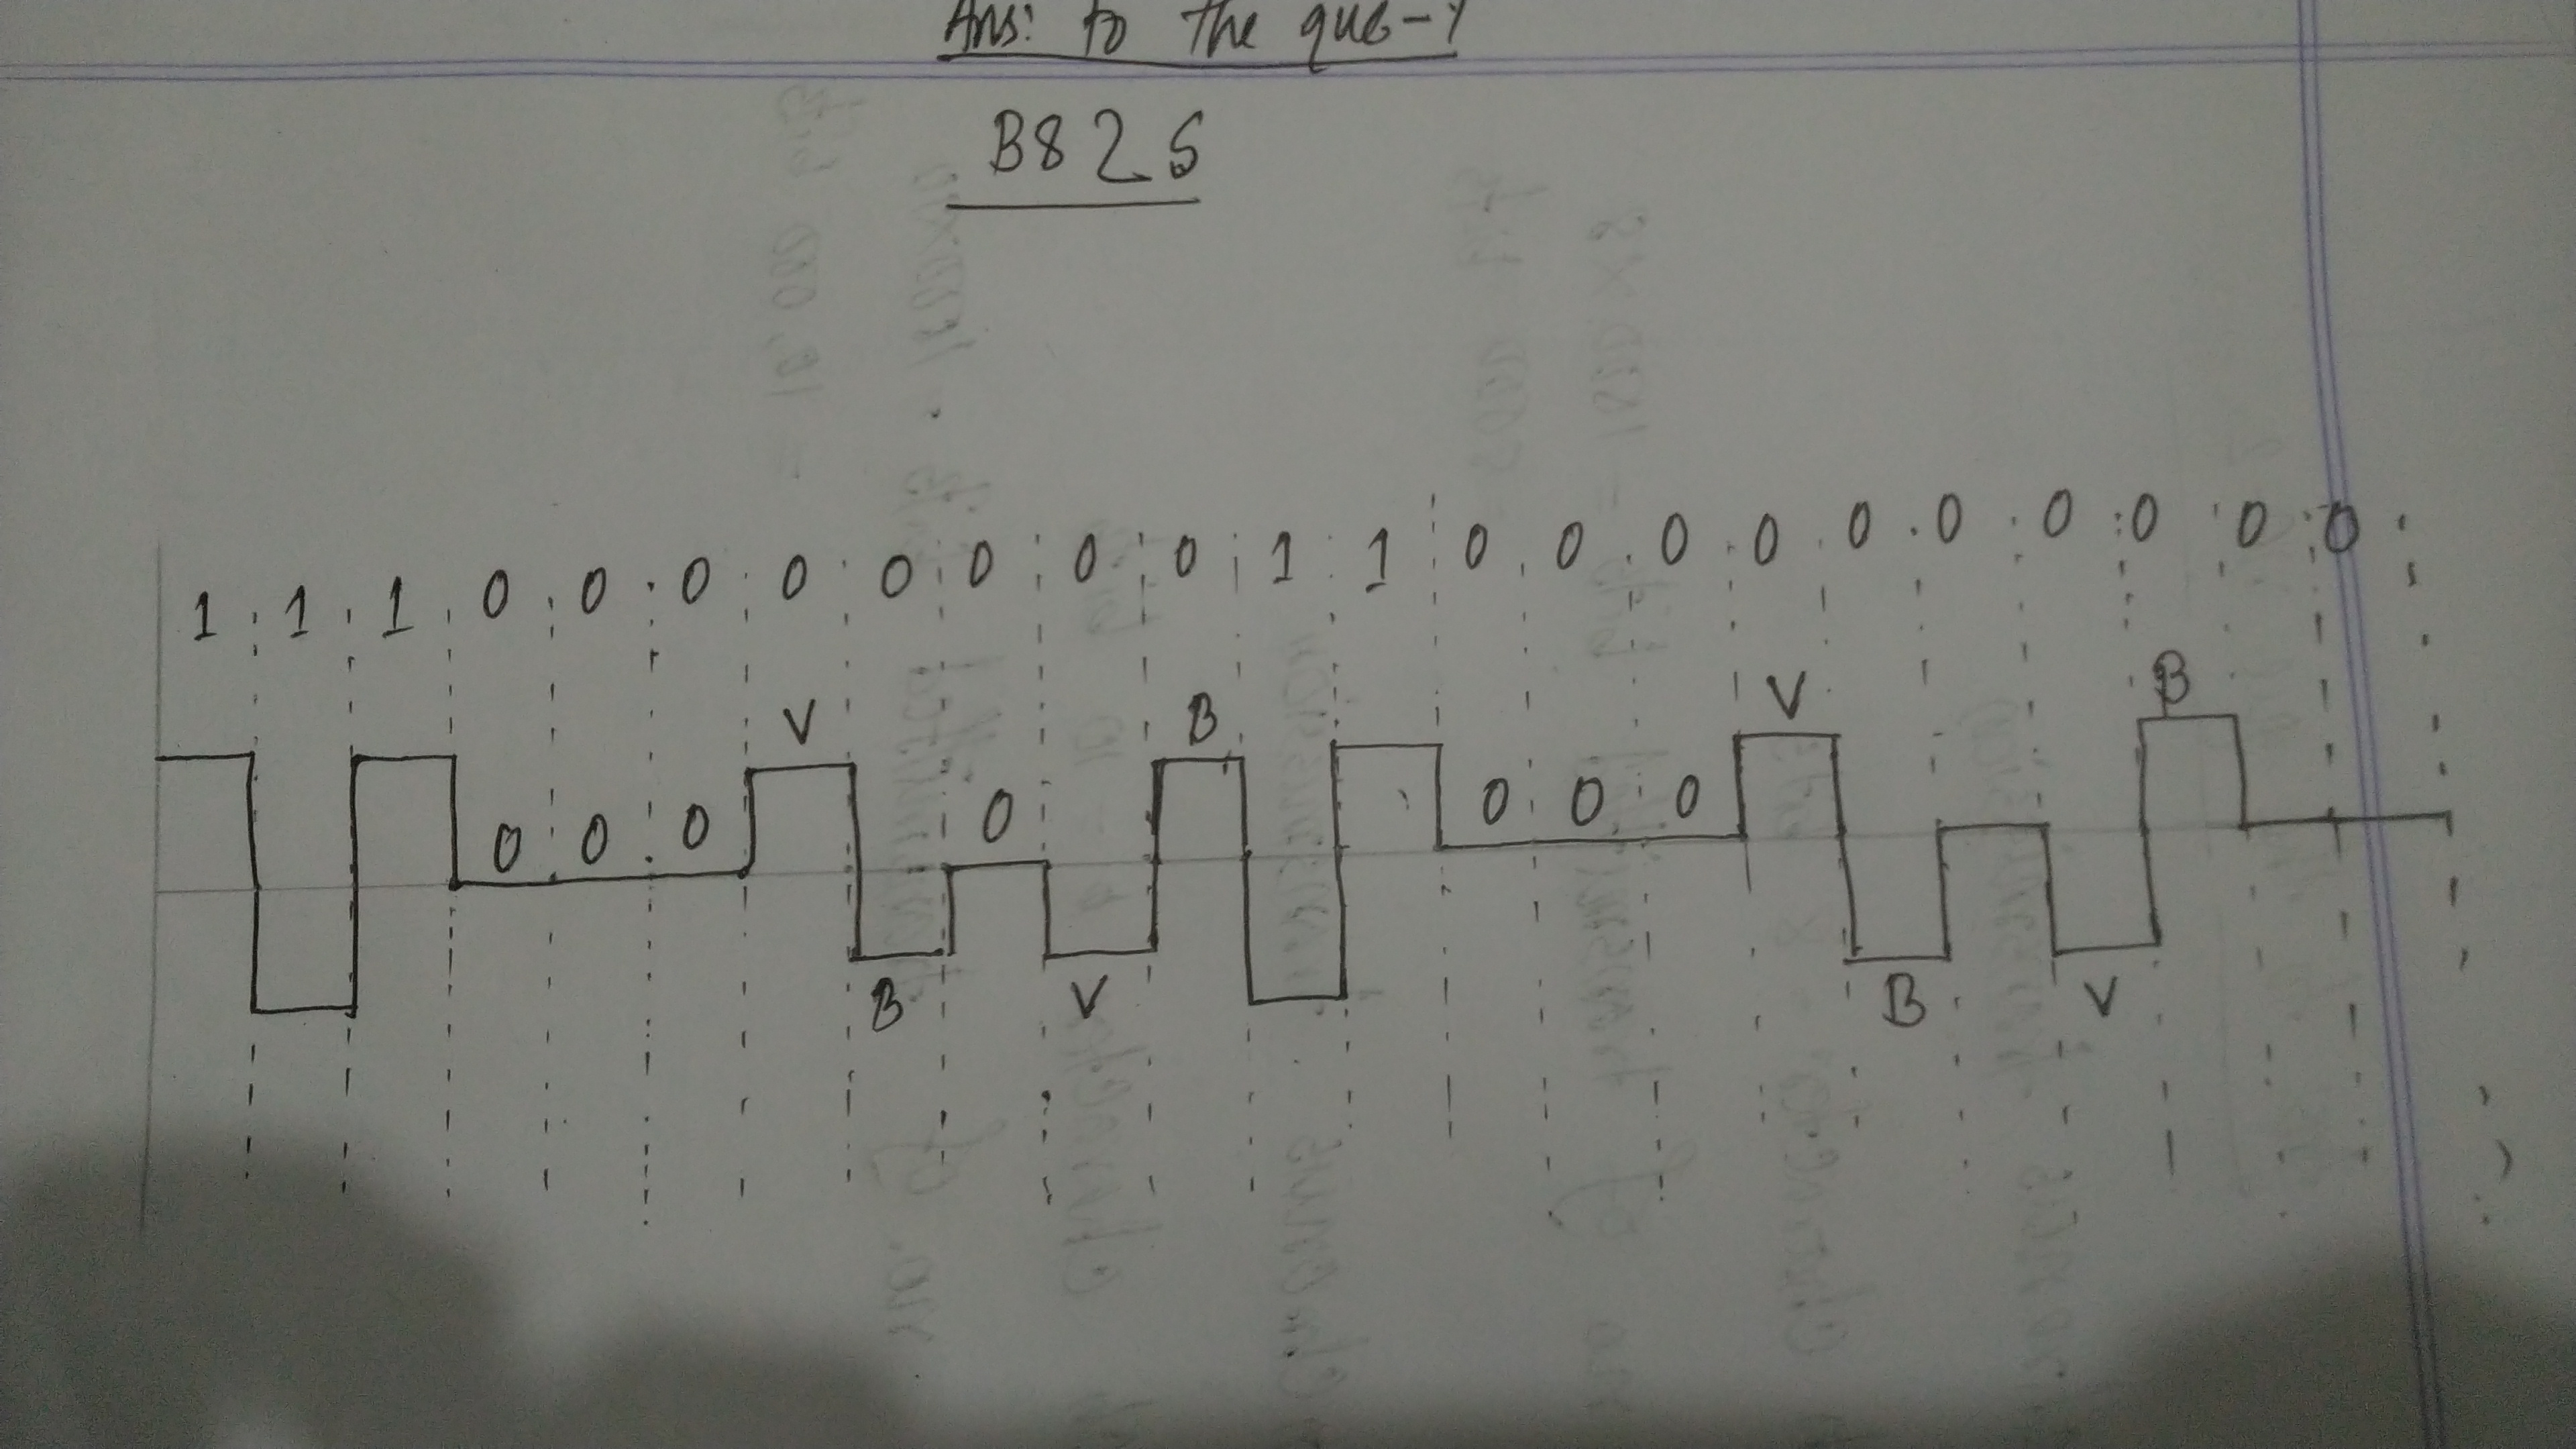 Ans: to the que-1
B82S
1 1 1 0 0 0 0 0 0 0 0 1 1 0 0 0 0 0 0 0 0 0 0
V B V B
0 0 0 0 0 0 0
B V B V